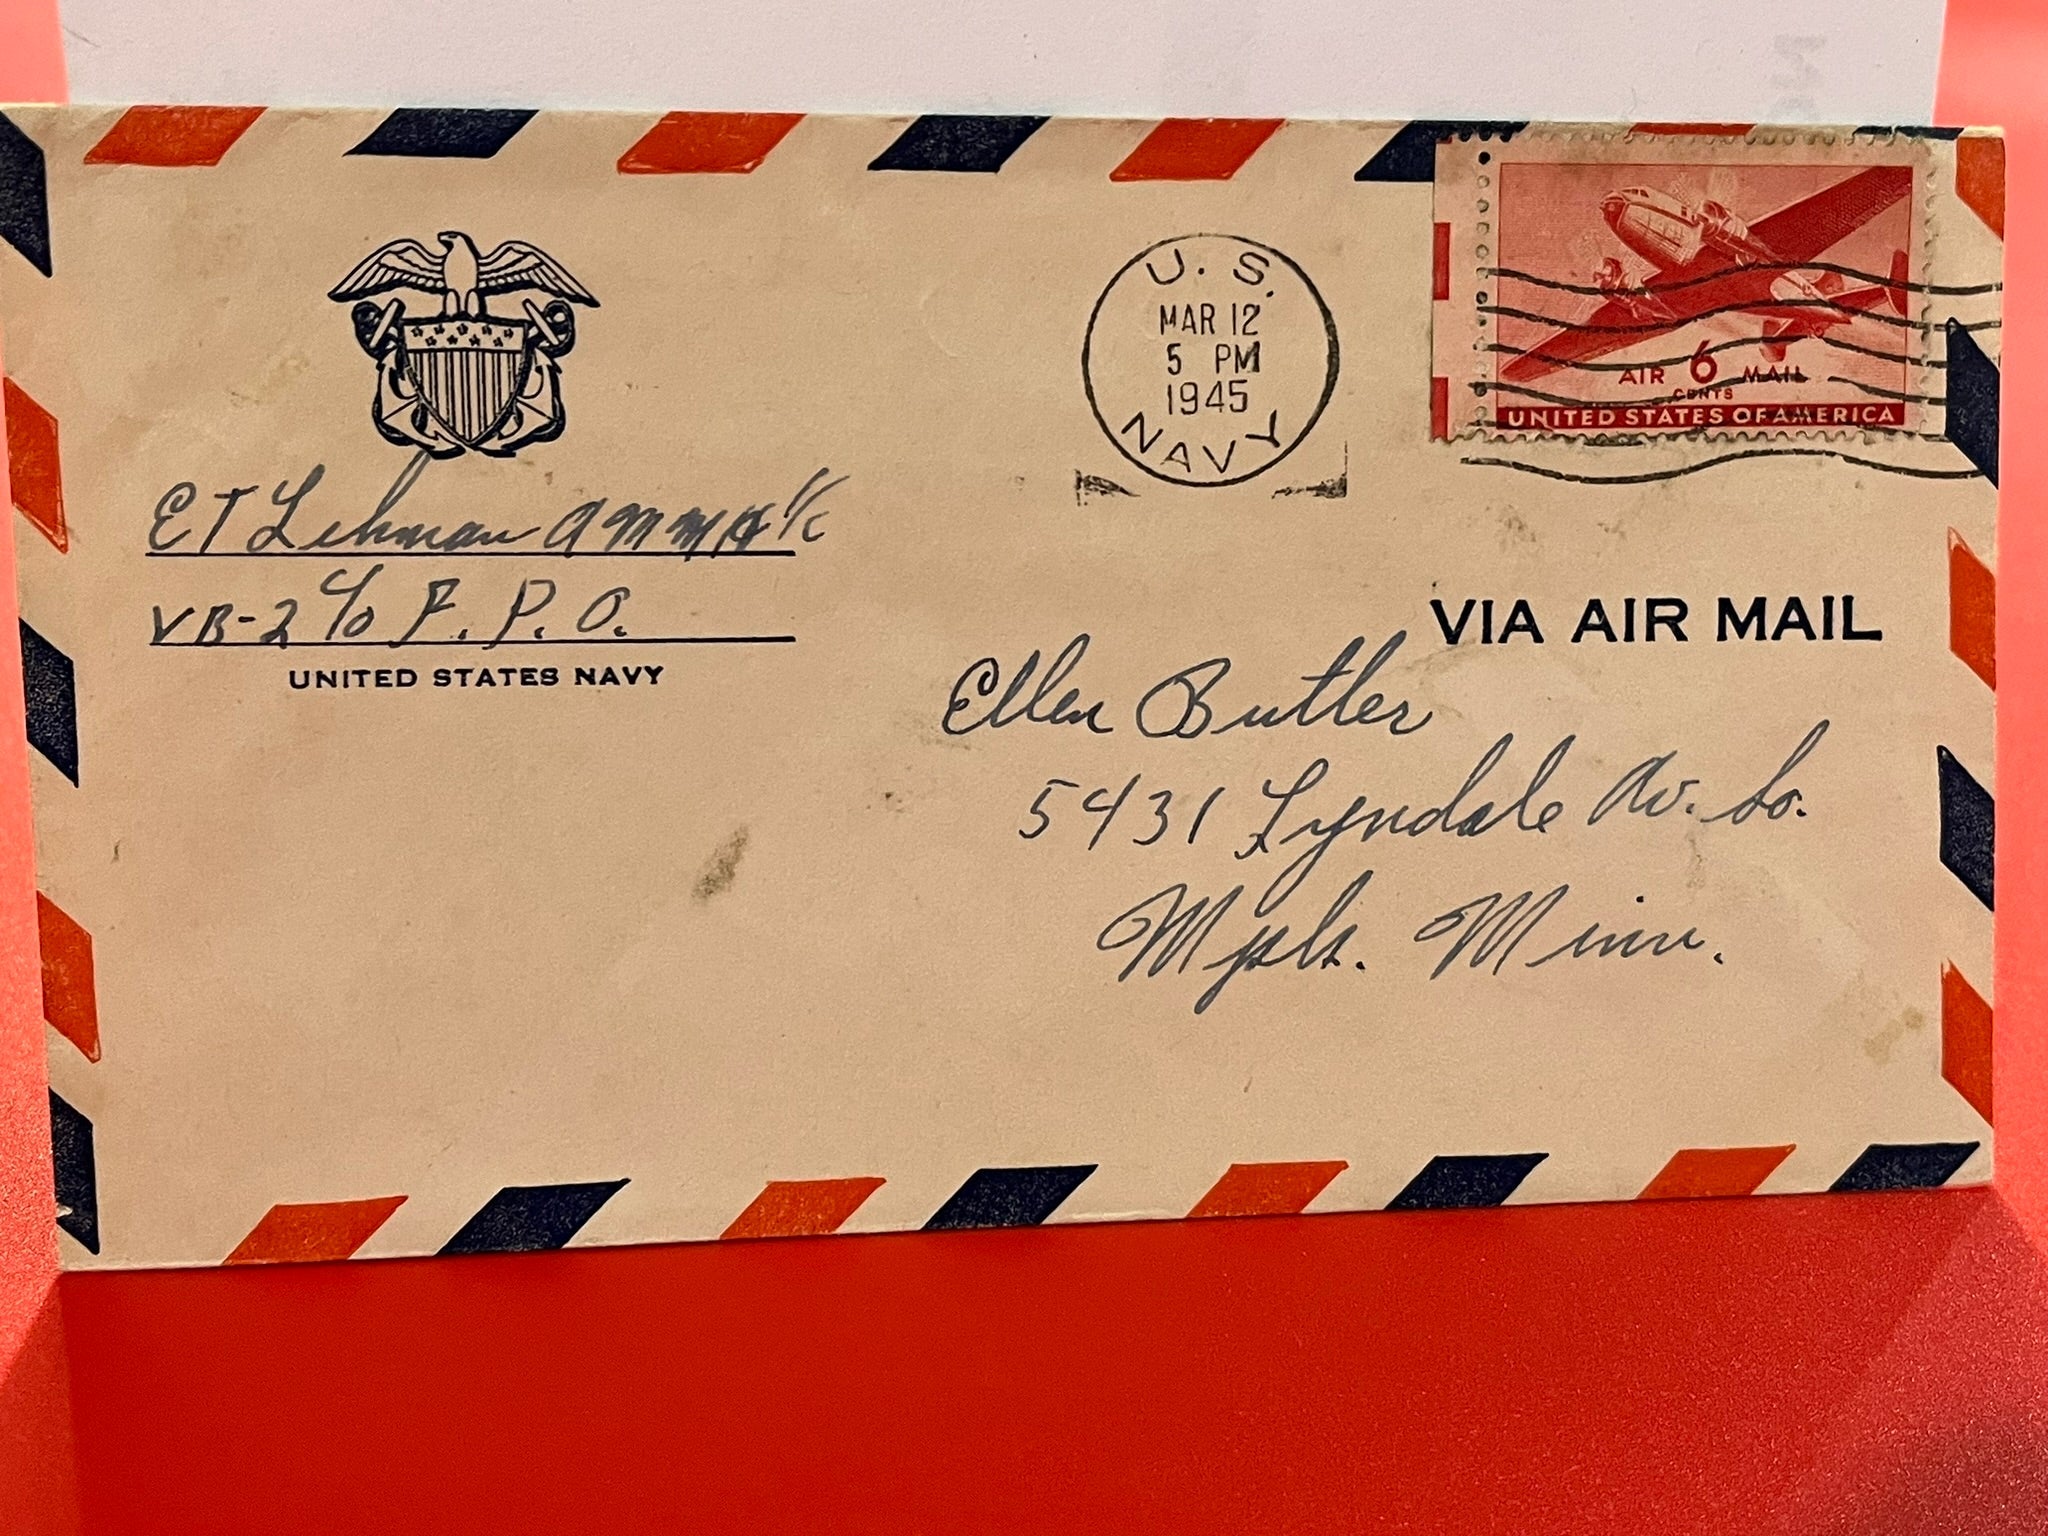 U. S.
MAR 12
5 PM
1945
NAVY
AIR 6 MAIL
CENTS
UNITED STATES OF AMERICA
E T Lehman
VB-2 c/o F. P. O.
UNITED STATES NAVY
VIA AIR MAIL
Ellen Butler
5431 Lyndale Av. So.
Mpls. Minn.